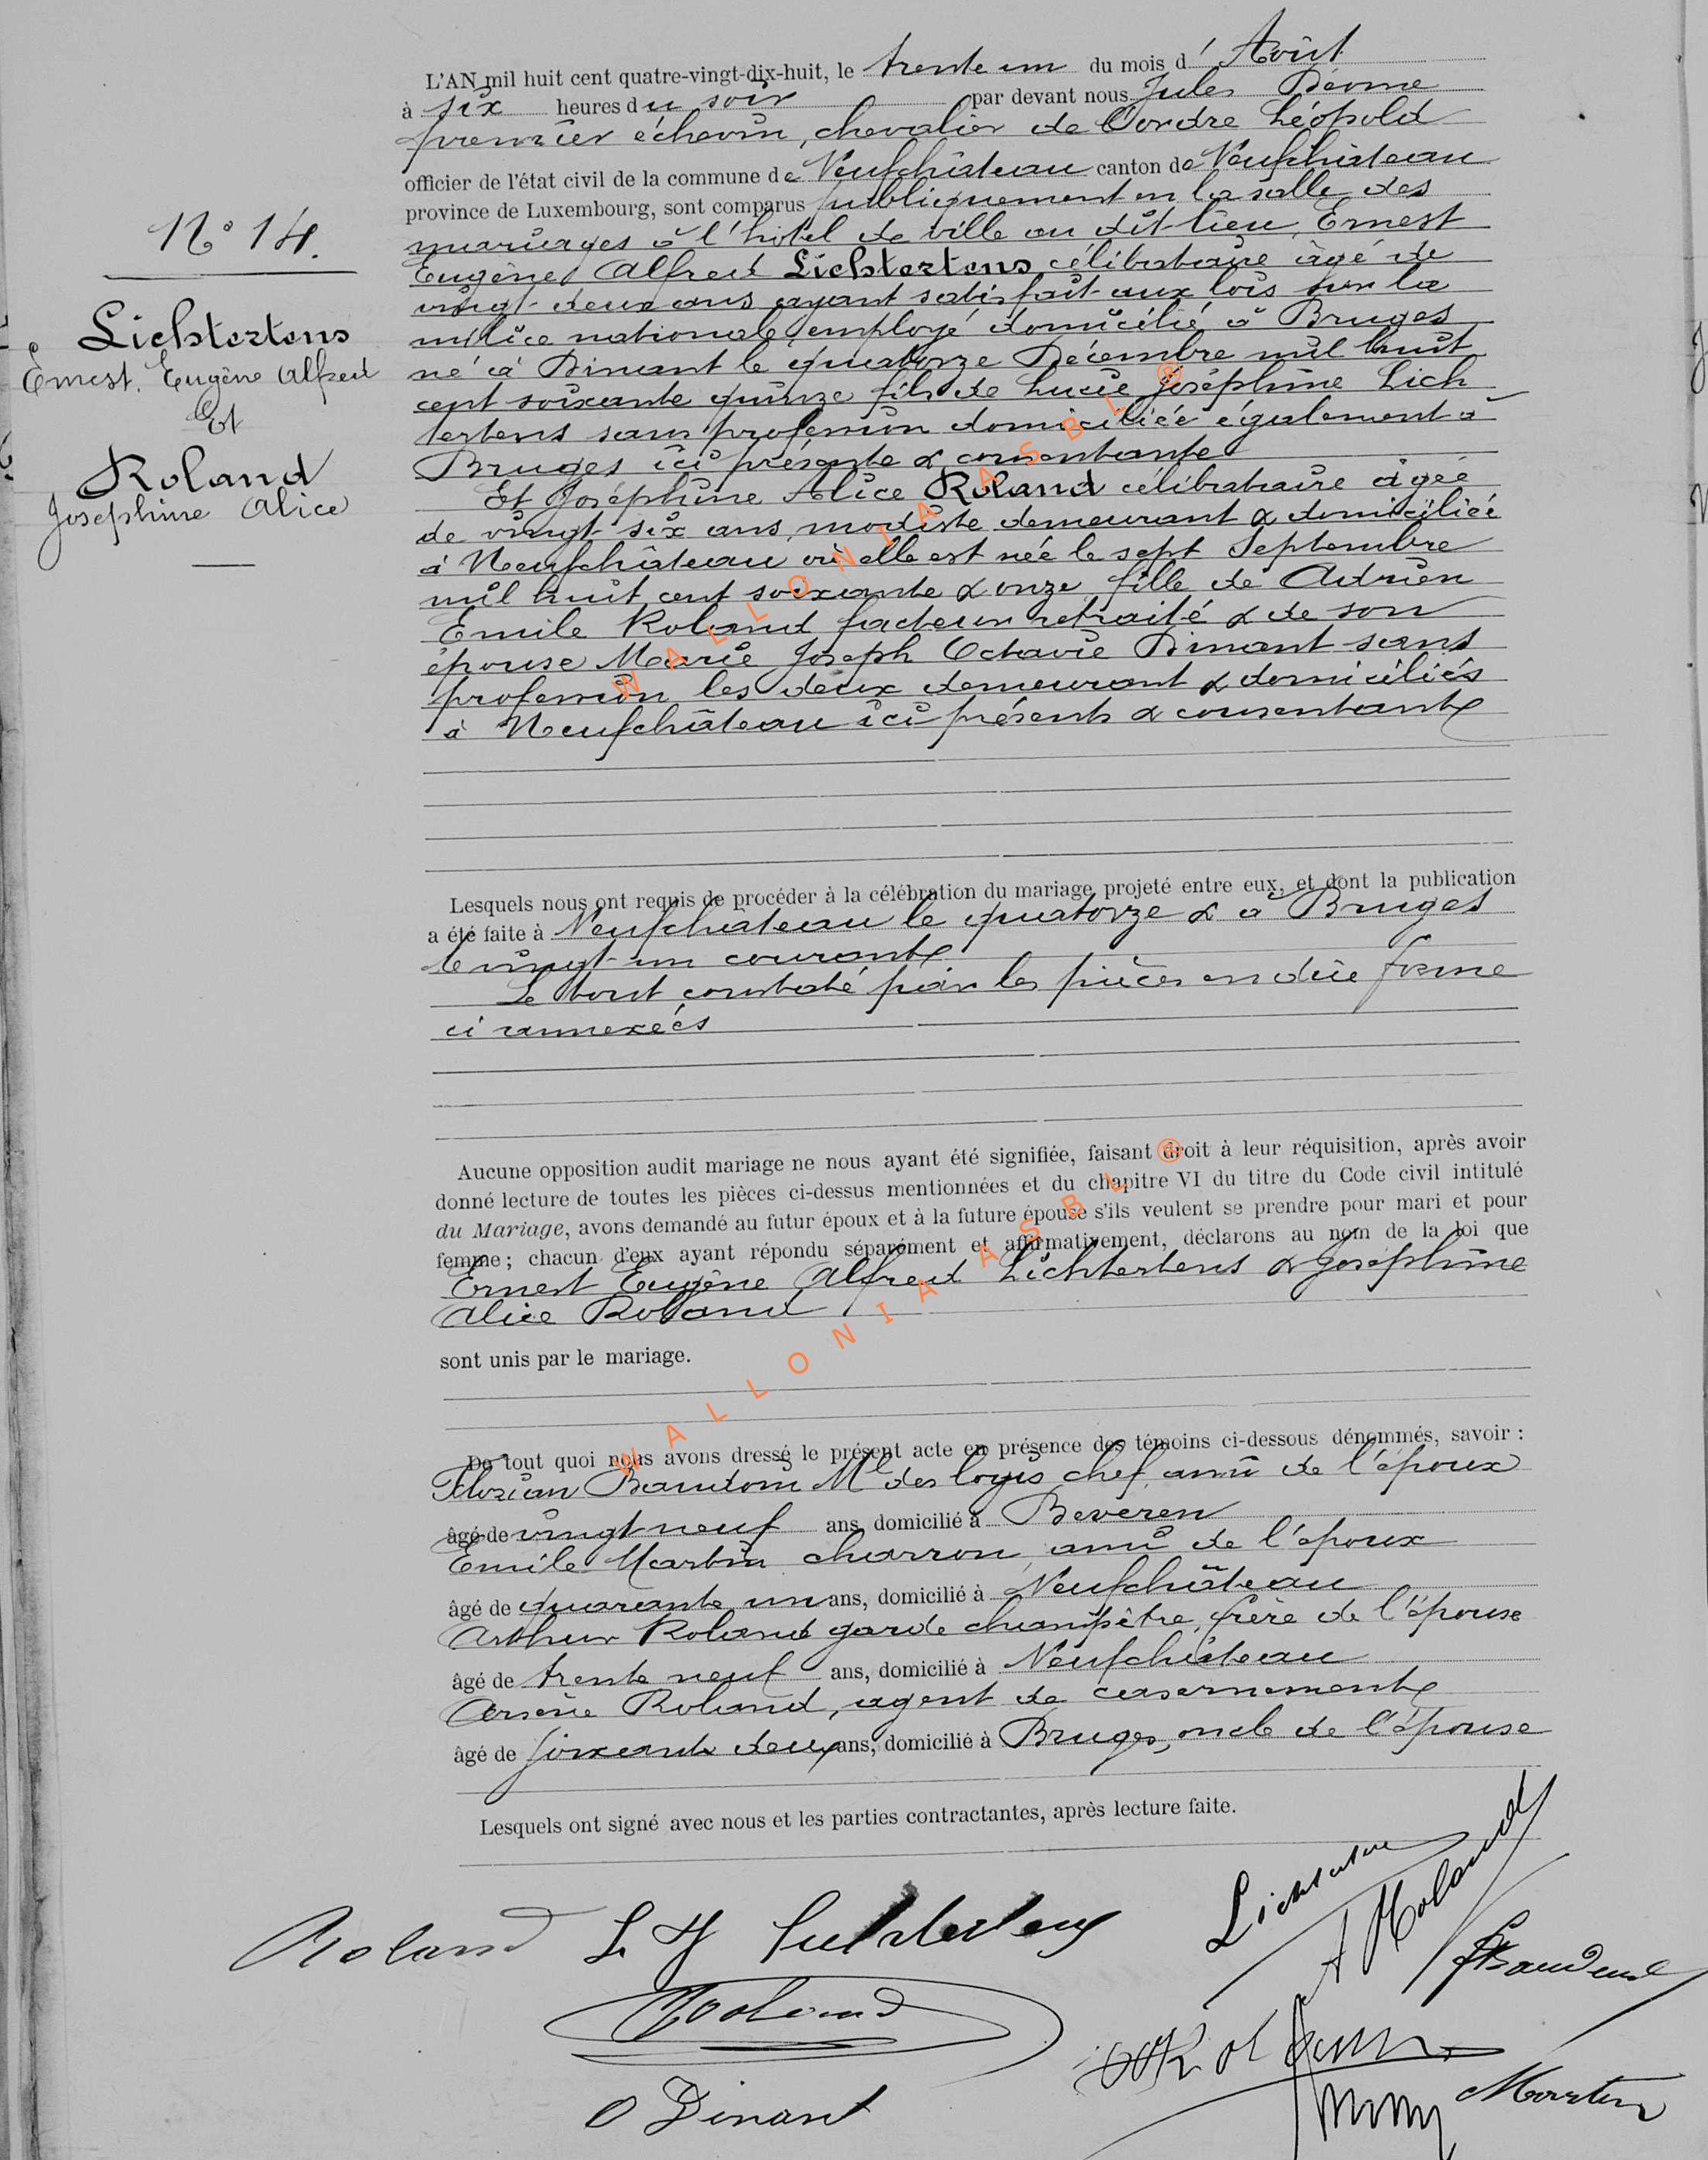 L'AN mil huit cent quatre-vingt-dix-huit, le trente un du mois d'Août
à six heures du soir par devant nous Jules
premier échevin, chevalier de l'ordre Léopold
officier de l'état civil de la commune de Neufchâteau canton de Neufchâteau
province de Luxembourg, sont comparus publiquement en la salle des
mariages à l'hôtel de ville au dit lieu, Ernest
Eugène Alfred Lichtertens célibataire âgé de
vingt-deux ans ayant satisfait aux lois sur la
milice nationale, employé domicilié à Bruges
né à Dinant le quatorze Décembre mil huit
cent soixante quinze fils de Lucie Joséphine Lich
tertens sans profession domiciliée également à
Bruges ici présente & consentante
Et Joséphine Alice Roland célibataire âgée
de vingt six ans, modiste demeurant & domiciliée
à Neufchâteau où elle est née le sept Septembre
mil huit cent soixante & onze, fille de Adrien
Emile Roland facteur retraité & de son
épouse Marie Joseph Octavie Dinant sans
profession les deux demeurant & domiciliés
à Neufchâteau ici présents & consentants
N° 14.
Lichtertens
Ernest. Eugène Alfred
Et
Roland
Joséphine Alice
Lesquels nous ont requis de procéder à la célébration du mariage projeté entre eux, et dont la publication
a été faite à Neufchâteau le quatorze & à Bruges
le vingt-un courant
Le tout constaté par les pièces en due forme
ci annexées
Aucune opposition audit mariage ne nous ayant été signifiée, faisant droit à leur réquisition, après avoir
donné lecture de toutes les pièces ci-dessus mentionnées et du chapitre VI du titre du Code civil intitulé
du Mariage, avons demandé au futur époux et à la future épouse s'ils veulent se prendre pour mari et pour
femme; chacun d'eux ayant répondu séparément et affirmativement, déclarons au nom de la loi que
Ernest Eugène Alfred Lichtertens & Joséphine
Alice Roland
sont unis par le mariage.
De tout quoi nous avons dressé le présent acte en présence des témoins ci-dessous dénommés, savoir :
Florian Baudoin Ml des logis chef, ami de l'époux
âgé de vingt neuf ans, domicilié à Beveren
Emile Martin charron, ami de l'époux
âgé de quarante un ans, domicilié à Neufchâteau
Arthur Roland garde champêtre, frère de l'épouse
âgé de trente neuf ans, domicilié à Neufchâteau
Arsène Roland, agent de casernement
âgé de soixante deux ans, domicilié à Bruges, oncle de l'épouse
Lesquels ont signé avec nous et les parties contractantes, après lecture faite.
Roland
L J Lichtertens
A Roland
Roland
O Dinant
Martin
WALLONIA ASBL ®
WALLONIA ASBL ®